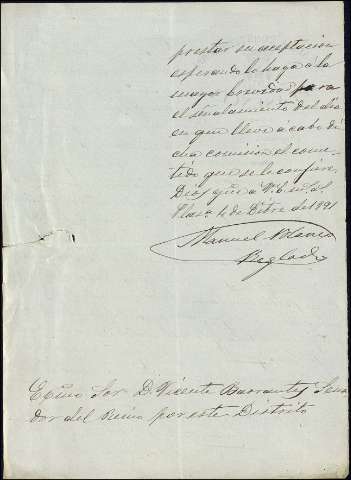 prestar su aceptacion
esperando lo haga a la
mayor brevedad para
el señalamiento del dia
en que lleve a cabo di
cha comision el come-
tido que se le confiere
Dios gue a V.E. m. a.s
4 de Dbre de 1891
Manuel Blanco
Exmo Sor D. Vicente Barrantes Sena
dor del Reino por este Distrito